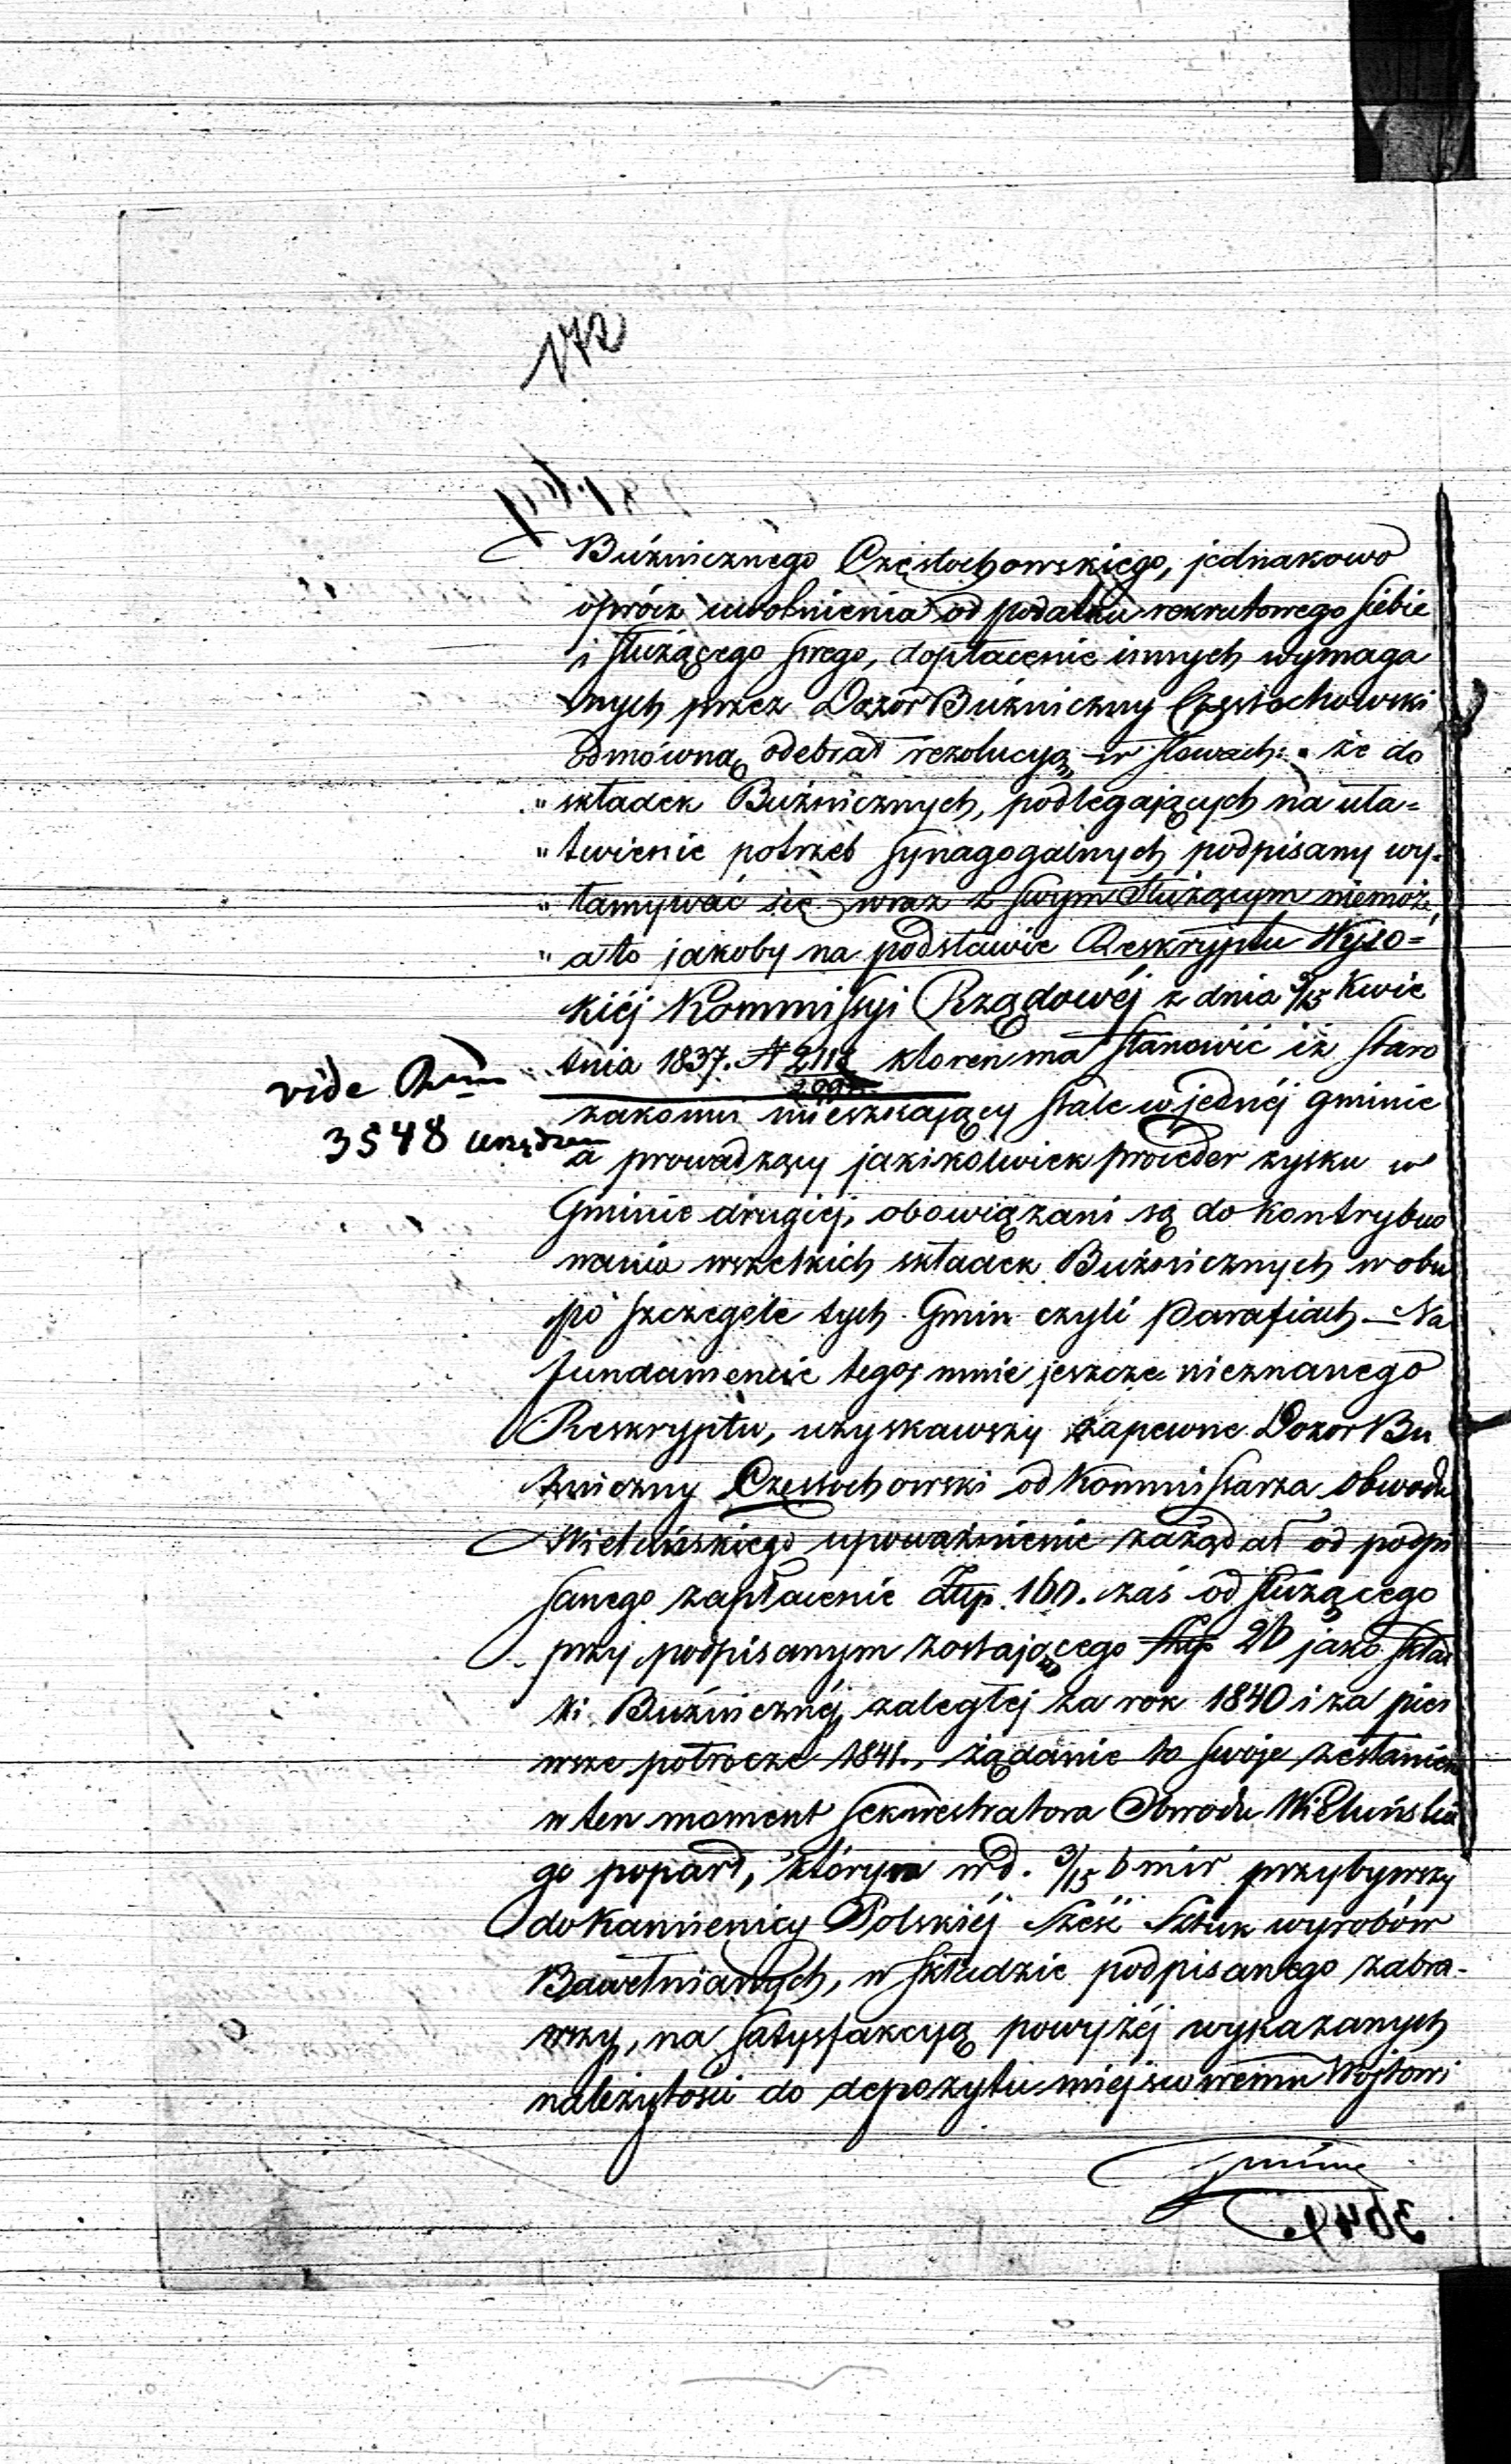 172
Buźnicznego Częstochowskiego, jednakowo
oprócz uwolnienia od podatku rekrutowego siebie
i służącego swego, dopłacenie innych wymaga
nych przez Dozór Buźniczny Częstochowski
odmówną odebrał rezolucyą w słowach: „że do
„składek Buźnicznych, podlegających na uła=
„twienie potrzeb synagogalnych podpisany wy-
„łamywać się wraz z swym służącym niemoże,
„a to jakoby na podstawie Reskryptu Wyso=
kiéj Kommissyi Rządowéj z dnia 3/15 Kwie
tnia 1837. N 2118 ktoren ma stanowić iż staro
zakonni mieszkający stale w jednéj gminie
a prowadzący jakikolwiek proceder zysku w
Gminie drugiej, obowiązani są do kontrybuo
wania wszelkich składek Buźnicznych w obu
po szczególe tych Gmin czyli Parafiach — Na
fundamencie tego, mnie jeszcze nieznanego
Reskryptu, uzyskawszy zapewne Dozor Bu
źniczny Częstochowski od Kommissarza Obwodu
Wieluńskiego upoważnienie zażądał od podpi
sanego zapłacenie Złp. 160. zaś od służącego
przy podpisanym zostającego Złp 20 jako skład
ki Buźnicznéj zaległej za rok 1840 i za pier
wsze półrocze 1841., żądanie to swoje zesłaniem
w ten moment sekwestratora Obwodu Wieluńskie
go poparł, którym w d. 3/15 b mir przybywszy
do Kamienicy Polskiéj sześć sztuk wyrobów
Bawełnianych, w składzie podpisanego zabra-
wszy, na satysfakcyą powyżéj wykazanych
należytości do depozytu miejscowemu Wójtowi
Gminy
vide
3548
3649